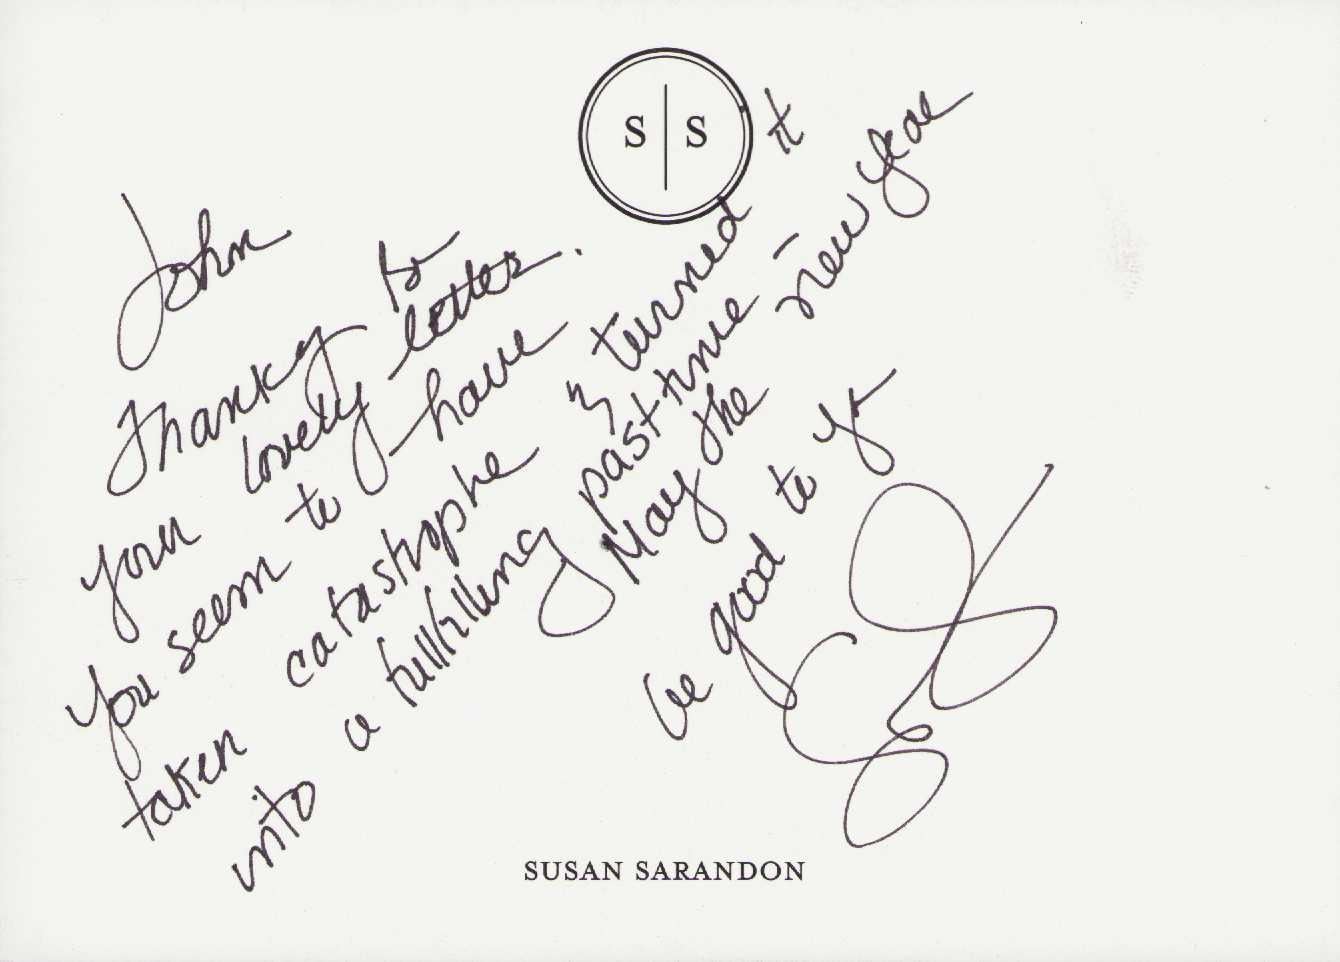 S | S
John
Thanks for
your lovely letter.
You seem to have
taken catastrophe & turned it
into a fulfilling pasttime –
May the new year
be good to you
SUSAN SARANDON